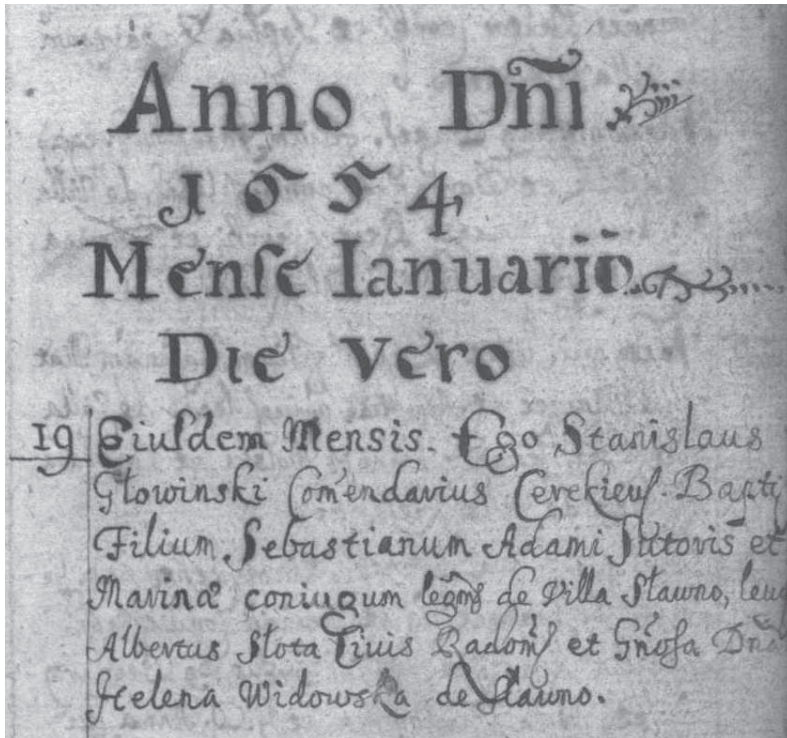 Anno Dn̄i
1654
Menſe Ianuario
Die vero
19 Eiuſdem Mensis. Ego Stanislaus
Głowinski Com̄endarius Cerekieuſ. Bapti
Filium Sebastianum Adami Sutoris et
Marinæ coniugum de Villa Sławno, leu
Albertus Słota Civis Radom̄ſ et Gn̄oſa Dn̄a
Helena Widowska de Sławno.